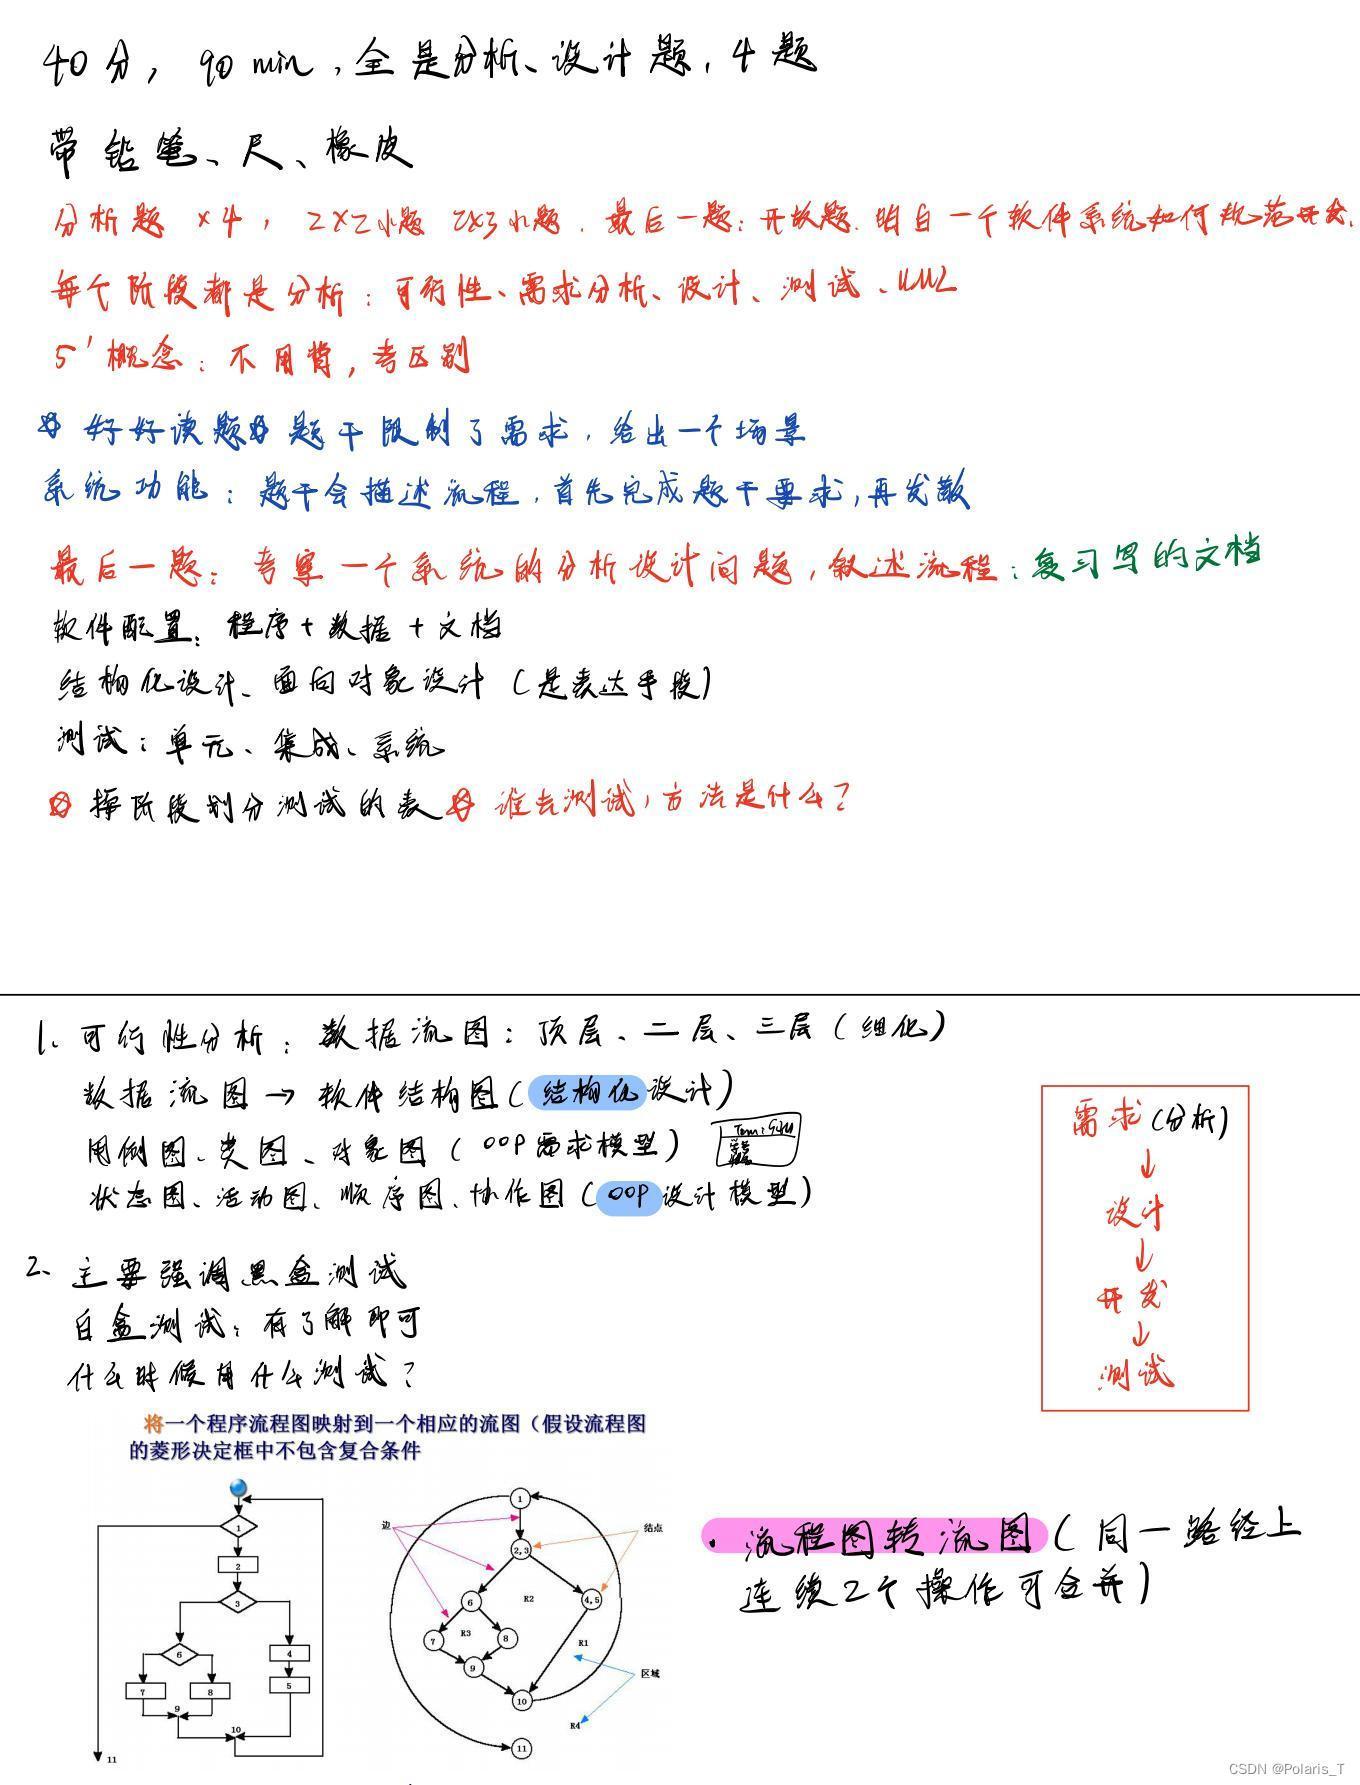 40分, 90 min, 全是分析、设计题, 4题
带铅笔、尺、橡皮
分析题 ×4, 2×2小题 2×3小题. 最后一题: 开放题. 明白一个软件系统如何规范开发.
每个阶段都是分析: 可行性、需求分析、设计、测试、UML
5' 概念: 不用背, 考区别
好好读题 题干限制了需求, 给出一个场景
系统功能: 题干会描述流程, 首先完成题干要求, 再发散
最后一题: 考察一个系统的分析设计问题, 叙述流程: 复习写的文档
软件配置: 程序+数据+文档
结构化设计、面向对象设计 (是表达手段)
测试: 单元、集成、系统
按阶段划分测试的表 谁去测试, 方法是什么?
1、可行性分析: 数据流图: 顶层、二层、三层 (细化)
数据流图 → 软件结构图 (结构化设计)
用例图、类图、对象图 (OOP需求模型)
状态图、活动图、顺序图、协作图 (OOP设计模型)
需求 (分析)
↓
设计
↓
开发
↓
测试
2、主要强调黑盒测试
白盒测试: 有了解即可
什么时候用什么测试?
将一个程序流程图映射到一个相应的流图(假设流程图
的菱形决定框中不包含复合条件
1
2
3
6
4
7
8
5
9
10
11
边
结点
1
2,3
6
R2
4,5
7
R3
8
R1
9
区域
10
R4
11
· 流程图转流图 (同一路径上
连续2个操作可合并)
CSDN @Polaris_T